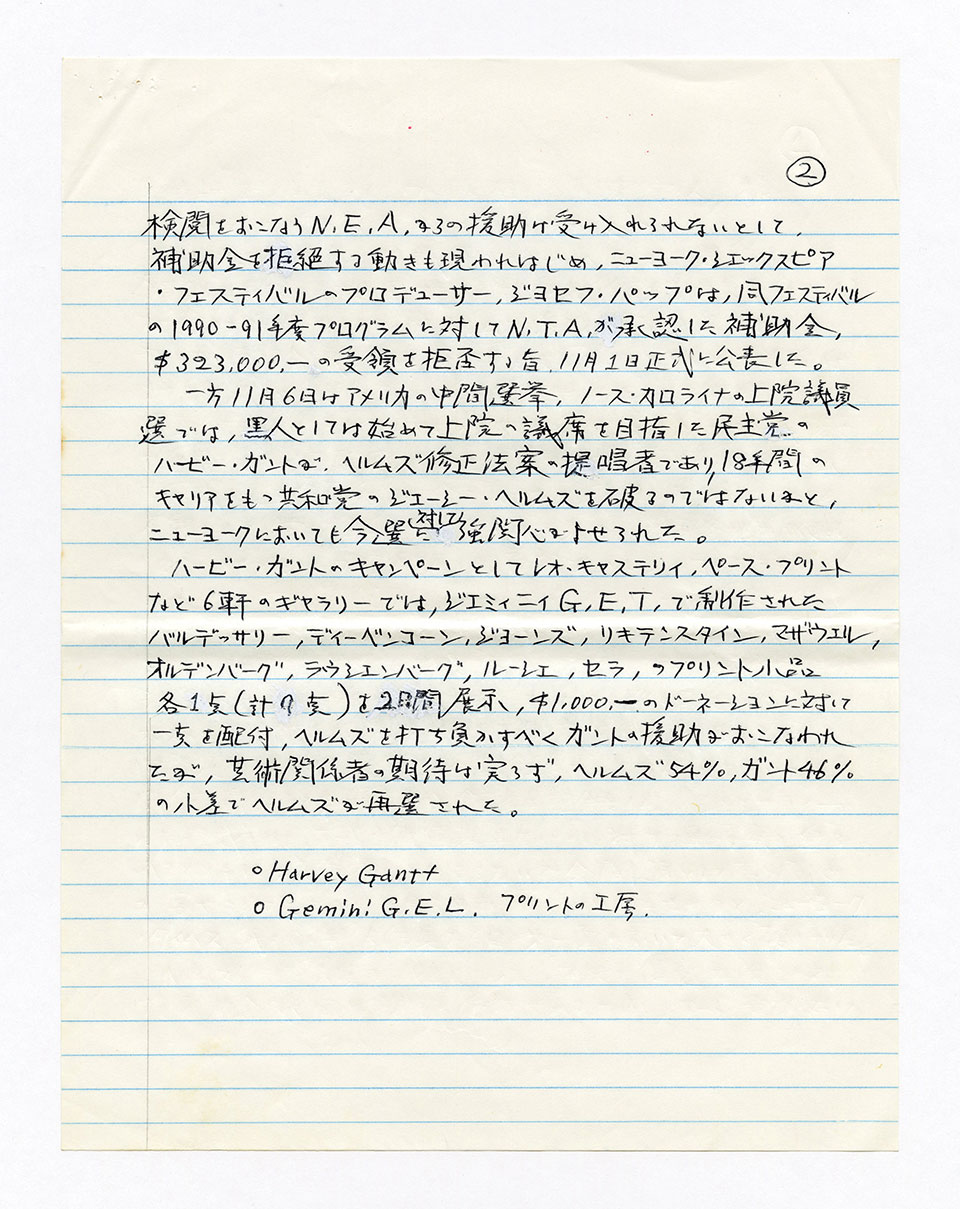 ②
検閲をおこなうN.E.A.からの援助は受け入れられないとして,
補助金を拒絶する動きも現われはじめ,ニューヨーク・シェックスピア
・フェスティバルのプロデューサー,ジョセフ・パップは,同フェスティバル
の1990-91年度プログラムに対してN.T.A.が承認した補助金,
$323,000.—の受領を拒否する旨,11月1日正式に公表した。
一方11月6日はアメリカの中間選挙,ノース・カロライナの上院議員
選では,黒人としては始めて上院の議席を目指した民主党の
ハービー・ガントが,ヘルムズ修正法案の提唱者であり,18年間の
キャリアをもつ共和党のジェーシー・ヘルムズを破るのではないかと,
ニューヨークにおいても今選に対して強関心がよせられた。
ハービー・ガントのキャンペーンとしてレオ・キャステリィ,ペース・プリント
など6軒のギャラリーでは,ジエミィニイG.E.T.で制作された
バルデッサリー,ディーベンコーン,ジョーンズ,リキテンスタイン,マザウエル,
オルデンバーグ,ラウシェンバーグ,ルーシェ,セラ,のプリント小品
各1点(計9点)を2日間展示,$1,000.—のドーネーションに対して
一点を配付,ヘルムズを打ち負かすべくガントの援助がおこなわれ
たが,芸術関係者の期待は実らず,ヘルムズ54%,ガント46%
の小差でヘルムズが再選された。
○Harvey Gantt
○Gemini G.E.L. プリントの工房.